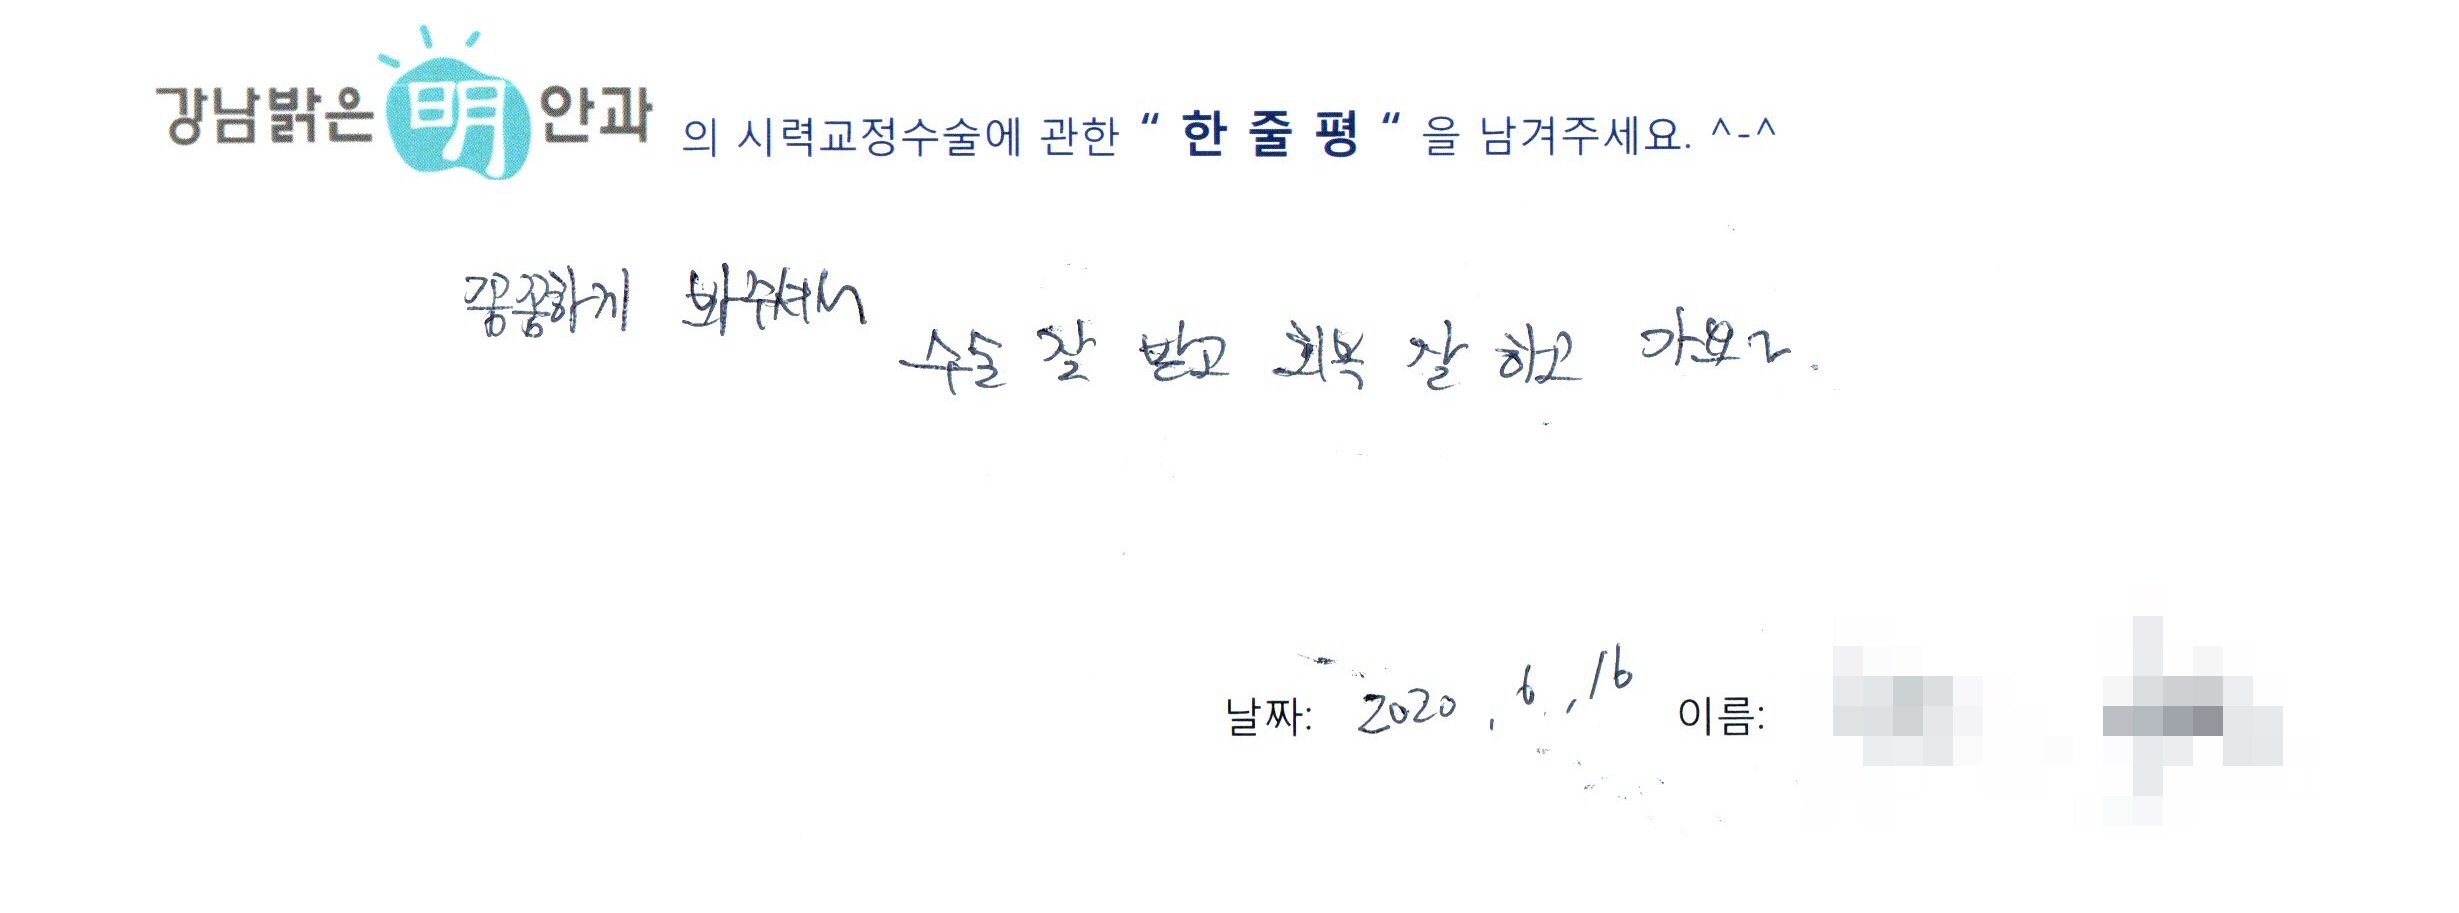 강남밝은 明 안과 의 시력교정수술에 관한 “ 한 줄 평 “ 을 남겨주세요. ^-^
꼼꼼하게 봐주셔서
수술 잘 받고 회복 잘 하고 가요~.
날짜: 2020 , 6 , 16 이름: